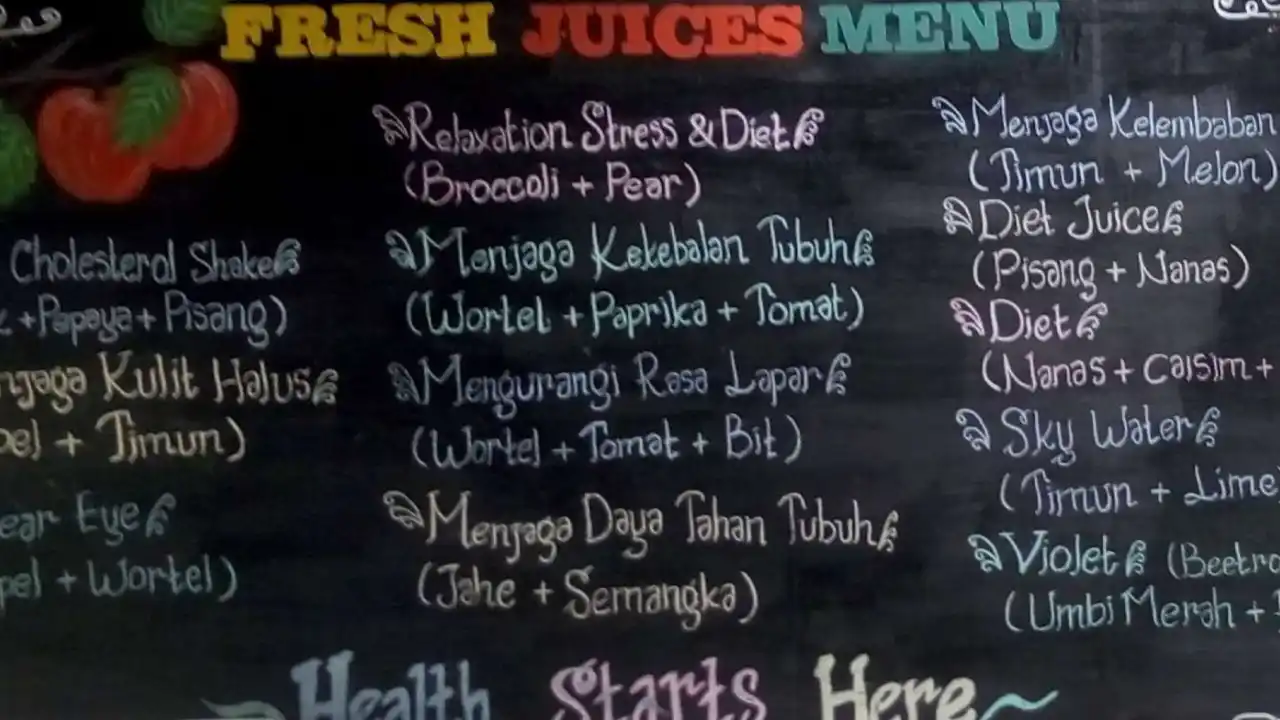 FRESH JUICES MENU
Cholesterol Shake
+Papaya + Pisang)
Kulit Halus
+ Timun)
Eye
+ Wortel)
Relaxation Stress & Diet
(Broccoli + Pear)
Menjaga Kekebalan Tubuh
(Wortel + Paprika + Tomat)
Mengurangi Rasa Lapar
(Wortel + Tomat + Bit)
Menjaga Daya Tahan Tubuh
(Jahe + Semangka)
Menjaga Kelembaban
(Timun + Melon)
Diet Juice
(Pisang + Nanas)
Diet
(Nanas + Caisim +
Sky Water
(Timun + Lime
Violet (Beetro
(Umbi Merah +
Health Starts Here